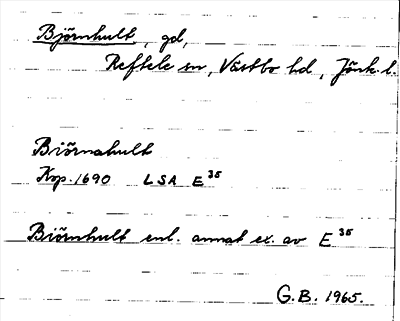 Björnhult, gd,
Reftele sn, Västbo hd, Jönk. l.
Biörnahult
Kop. 1690 LSA E 35
Biörnhult enl. annat ex. av E 35
G.B. 1965.